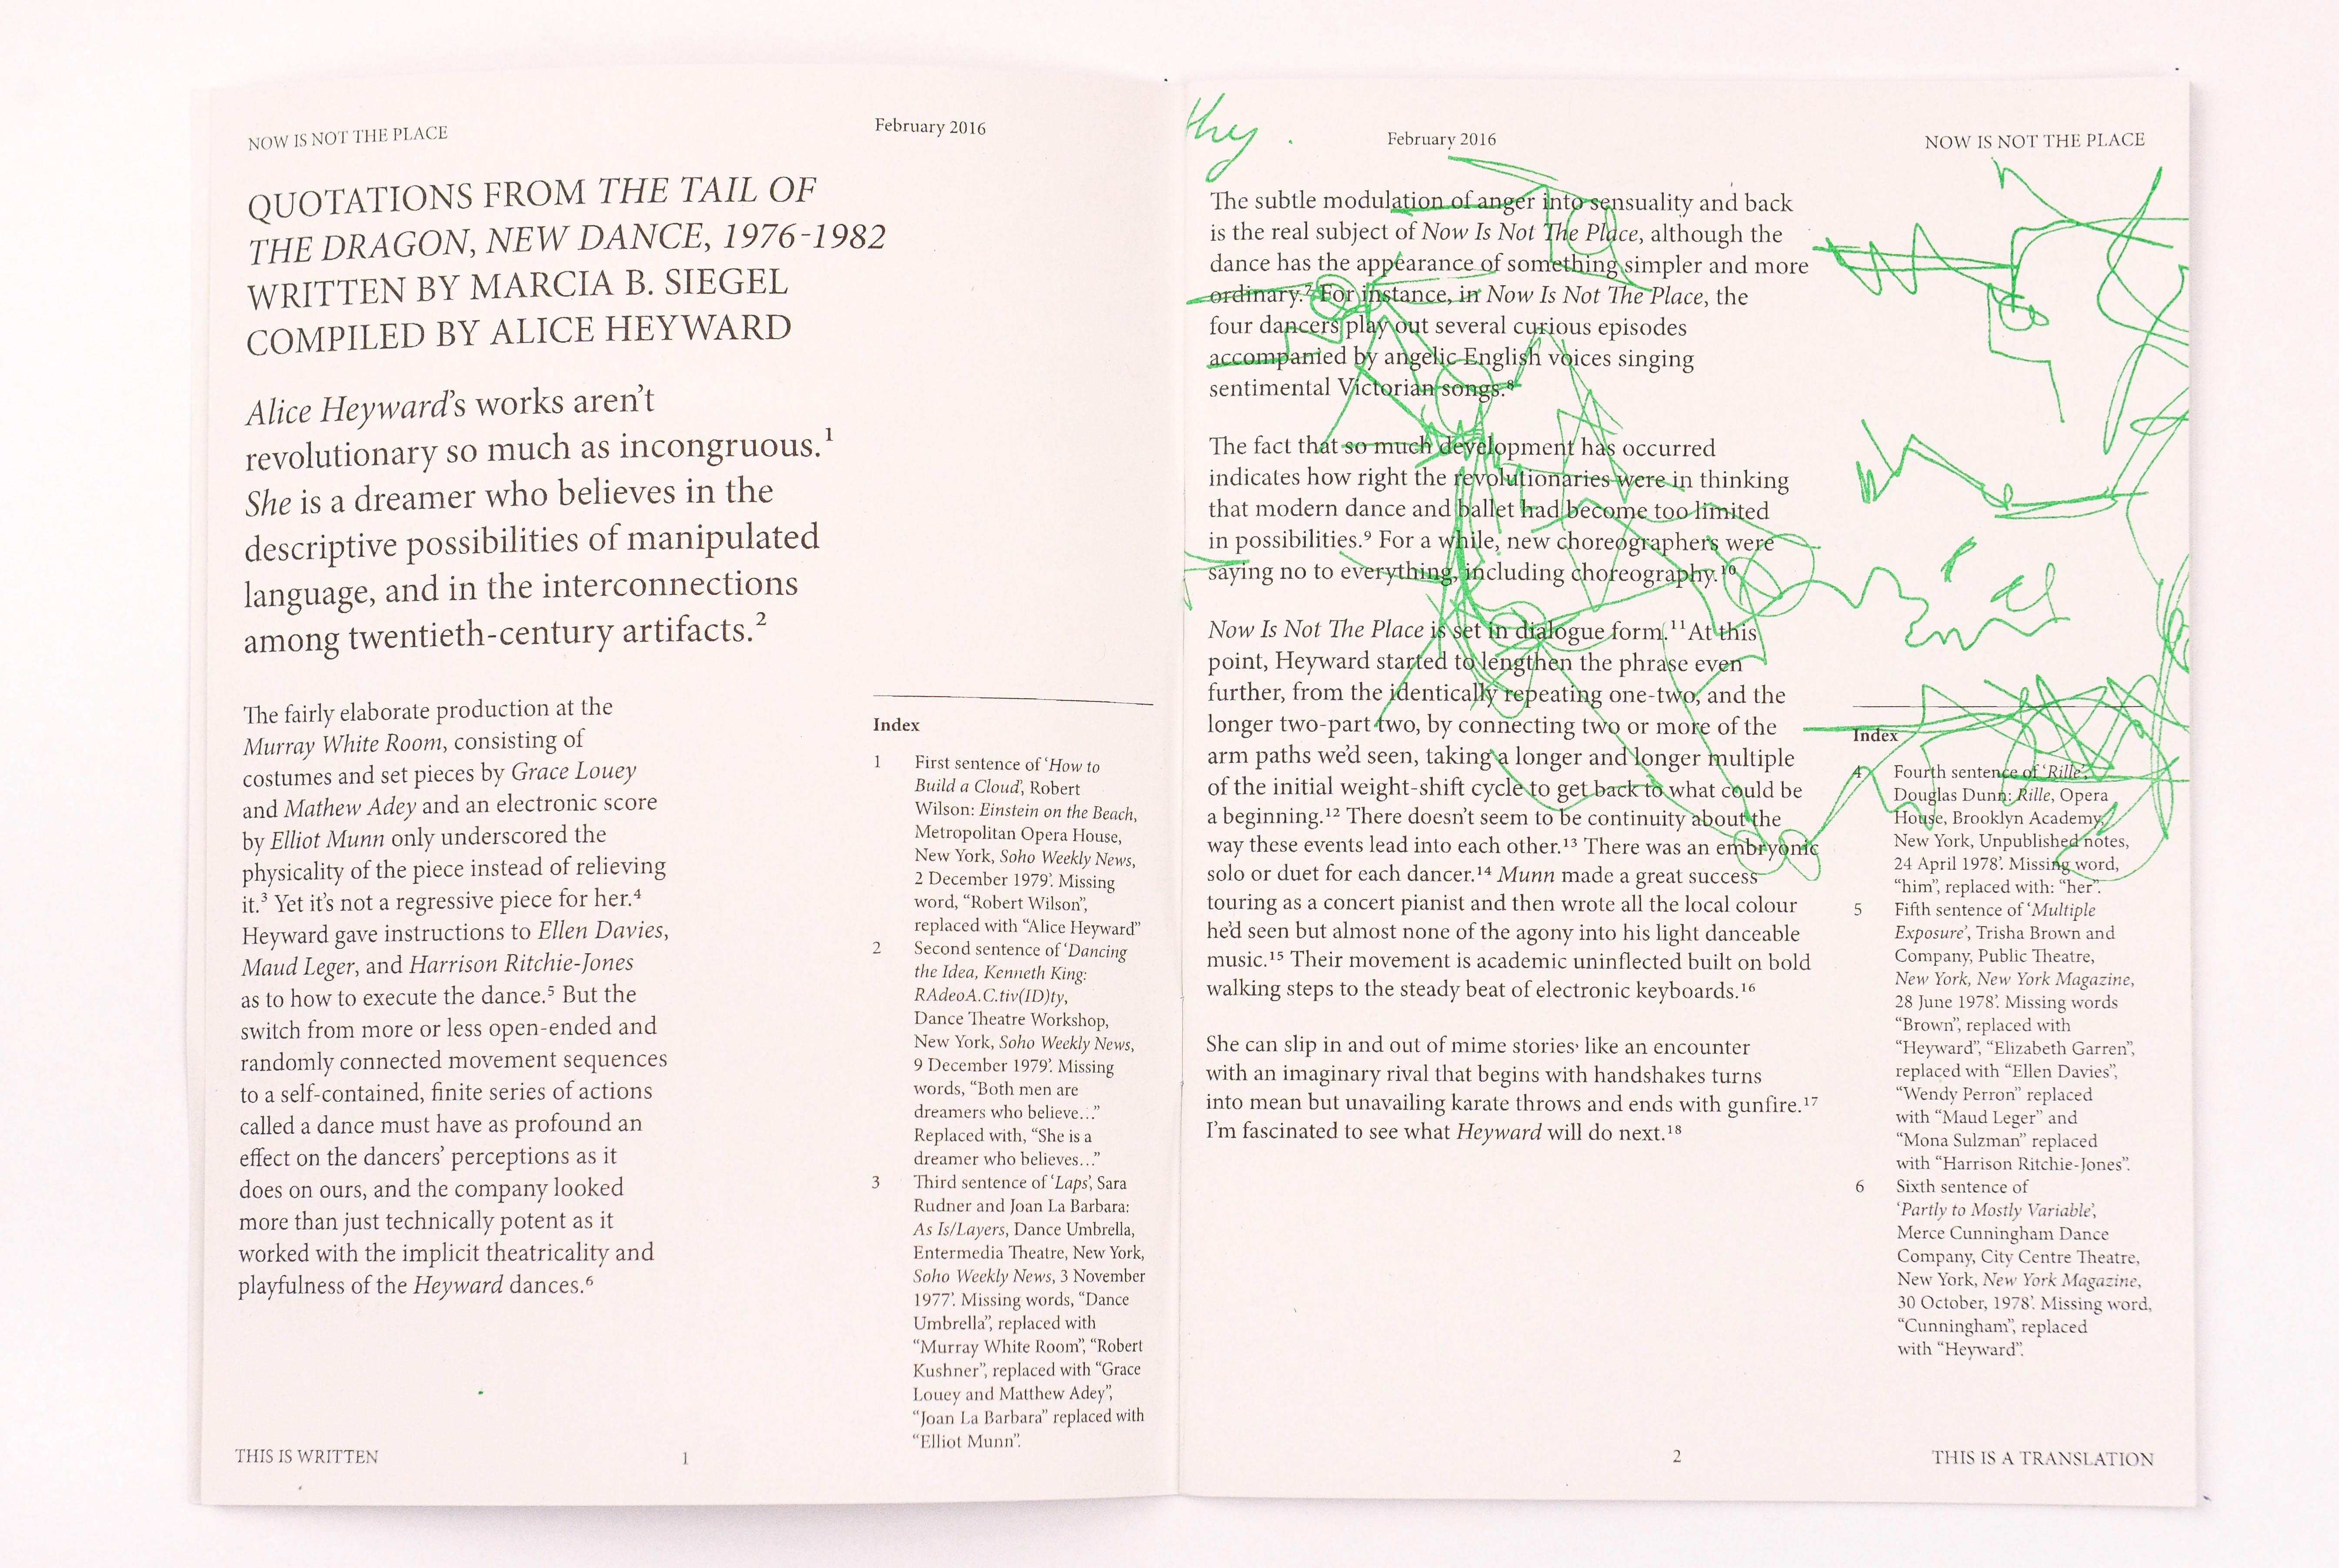 NOW IS NOT THE PLACE
February 2016
QUOTATIONS FROM THE TAIL OF
THE DRAGON, NEW DANCE, 1976-1982
WRITTEN BY MARCIA B. SIEGEL
COMPILED BY ALICE HEYWARD
Alice Heyward's works aren't
revolutionary so much as incongruous.¹
She is a dreamer who believes in the
descriptive possibilities of manipulated
language, and in the interconnections
among twentieth-century artifacts.²
The fairly elaborate production at the
Murray White Room, consisting of
costumes and set pieces by Grace Louey
and Mathew Adey and an electronic score
by Elliot Munn only underscored the
physicality of the piece instead of relieving
it.³ Yet it's not a regressive piece for her.⁴
Heyward gave instructions to Ellen Davies,
Maud Leger, and Harrison Ritchie-Jones
as to how to execute the dance.⁵ But the
switch from more or less open-ended and
randomly connected movement sequences
to a self-contained, finite series of actions
called a dance must have as profound an
effect on the dancers' perceptions as it
does on ours, and the company looked
more than just technically potent as it
worked with the implicit theatricality and
playfulness of the Heyward dances.⁶
Index
1 First sentence of 'How to
Build a Cloud', Robert
Wilson: Einstein on the Beach,
Metropolitan Opera House,
New York, Soho Weekly News,
2 December 1979'. Missing
word, "Robert Wilson",
replaced with "Alice Heyward"
2 Second sentence of 'Dancing
the Idea, Kenneth King:
RAdeoA.C.tiv(ID)ty,
Dance Theatre Workshop,
New York, Soho Weekly News,
9 December 1979'. Missing
words, "Both men are
dreamers who believe…"
Replaced with, "She is a
dreamer who believes…"
3 Third sentence of 'Laps', Sara
Rudner and Joan La Barbara:
As Is/Layers, Dance Umbrella,
Entermedia Theatre, New York,
Soho Weekly News, 3 November
1977'. Missing words, "Dance
Umbrella", replaced with
"Murray White Room", "Robert
Kushner", replaced with "Grace
Louey and Matthew Adey",
"Joan La Barbara" replaced with
"Elliot Munn".
THIS IS WRITTEN
1
they.
February 2016
NOW IS NOT THE PLACE
The subtle modulation of anger into sensuality and back
is the real subject of Now Is Not The Place, although the
dance has the appearance of something simpler and more
ordinary.⁷ For instance, in Now Is Not The Place, the
four dancers play out several curious episodes
accompanied by angelic English voices singing
sentimental Victorian songs.⁸
The fact that so much development has occurred
indicates how right the revolutionaries were in thinking
that modern dance and ballet had become too limited
in possibilities.⁹ For a while, new choreographers were
saying no to everything, including choreography.¹⁰
Now Is Not The Place is set in dialogue form.¹¹ At this
point, Heyward started to lengthen the phrase even
further, from the identically repeating one-two, and the
longer two-part two, by connecting two or more of the
arm paths we'd seen, taking a longer and longer multiple
of the initial weight-shift cycle to get back to what could be
a beginning.¹² There doesn't seem to be continuity about the
way these events lead into each other.¹³ There was an embryonic
solo or duet for each dancer.¹⁴ Munn made a great success
touring as a concert pianist and then wrote all the local colour
he'd seen but almost none of the agony into his light danceable
music.¹⁵ Their movement is academic uninflected built on bold
walking steps to the steady beat of electronic keyboards.¹⁶
She can slip in and out of mime stories, like an encounter
with an imaginary rival that begins with handshakes turns
into mean but unavailing karate throws and ends with gunfire.¹⁷
I'm fascinated to see what Heyward will do next.¹⁸
Index
4 Fourth sentence of 'Rille',
Douglas Dunn: Rille, Opera
House, Brooklyn Academy,
New York, Unpublished notes,
24 April 1978'. Missing word,
"him", replaced with: "her".
5 Fifth sentence of 'Multiple
Exposure', Trisha Brown and
Company, Public Theatre,
New York, New York Magazine,
28 June 1978'. Missing words
"Brown", replaced with
"Heyward", "Elizabeth Garren",
replaced with "Ellen Davies",
"Wendy Perron" replaced
with "Maud Leger" and
"Mona Sulzman" replaced
with "Harrison Ritchie-Jones".
6 Sixth sentence of
'Partly to Mostly Variable',
Merce Cunningham Dance
Company, City Centre Theatre,
New York, New York Magazine,
30 October, 1978'. Missing word,
"Cunningham", replaced
with "Heyward".
2
THIS IS A TRANSLATION